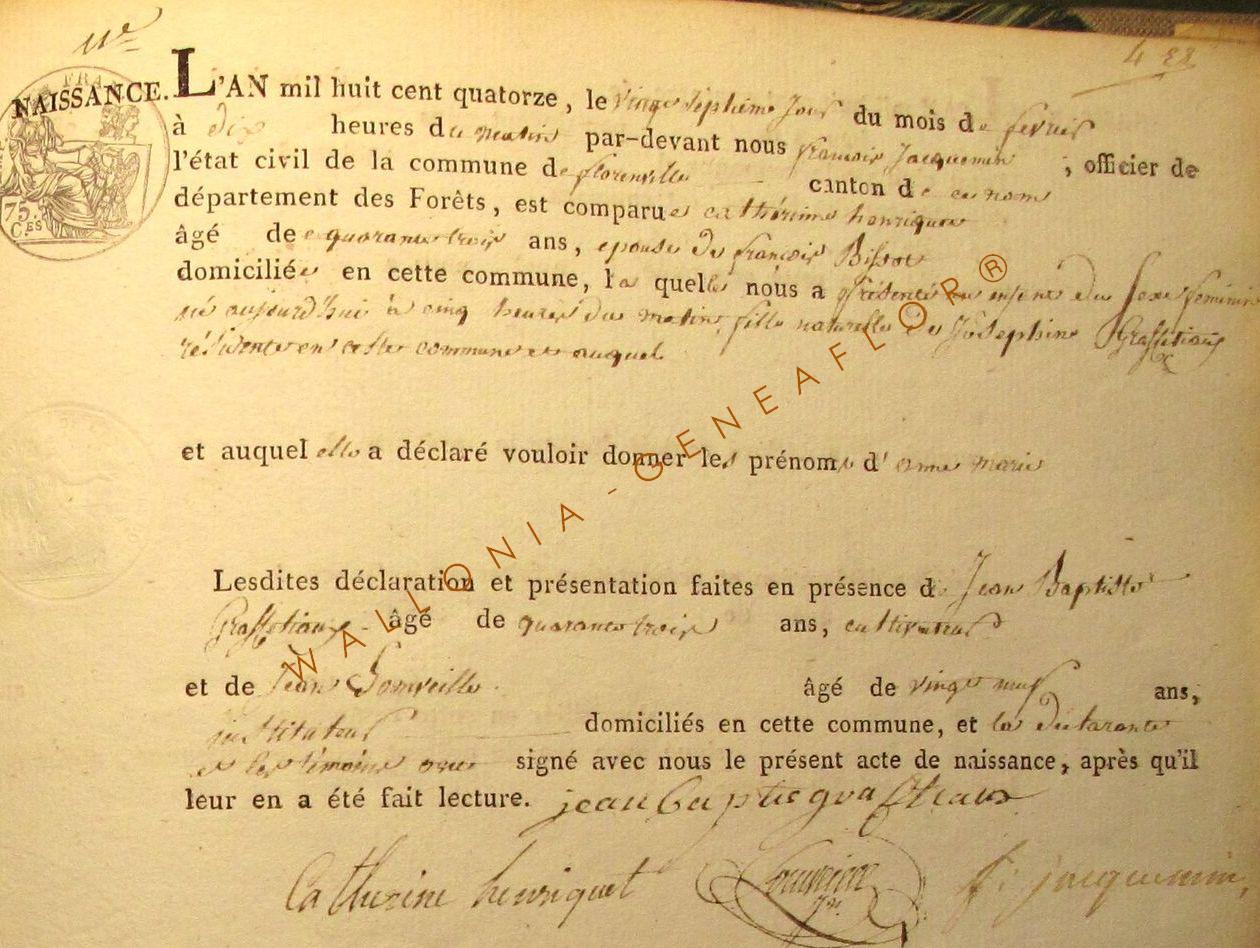 nº
4 22
FRA
75.
CES
NAISSANCE. L'AN mil huit cent quatorze, le vingt septieme Jour du mois de fevrier
à dix heures du matin par-devant nous francois Jacquemin, officier de
l'état civil de la commune de florenville canton de ce nom
département des Forêts, est comparue catherine henriquet
âgé de quarante trois ans, epouse de françois Bissot
domiciliée en cette commune, la quelle nous a présenté un enfant du sexe feminin
né aujourd'hui à cinq heures du matin, fille naturelle de Josephine Grassetiaux
résidente en cette commune et auquel
et auquel elle a déclaré vouloir donner les prénoms d'anne marie
Lesdites déclaration et présentation faites en présence de Jean Baptiste
Grassetiaux âgé de quarante trois ans, cultivateur
et de Jean âgé de vingt neuf ans,
instituteur domiciliés en cette commune, et la déclarante
et les témoins ont signé avec nous le présent acte de naissance, après qu'il
leur en a été fait lecture. jean baptiste
Catherine henriquet f: jacquemin,
WALLONIA-GENEAFLOR®